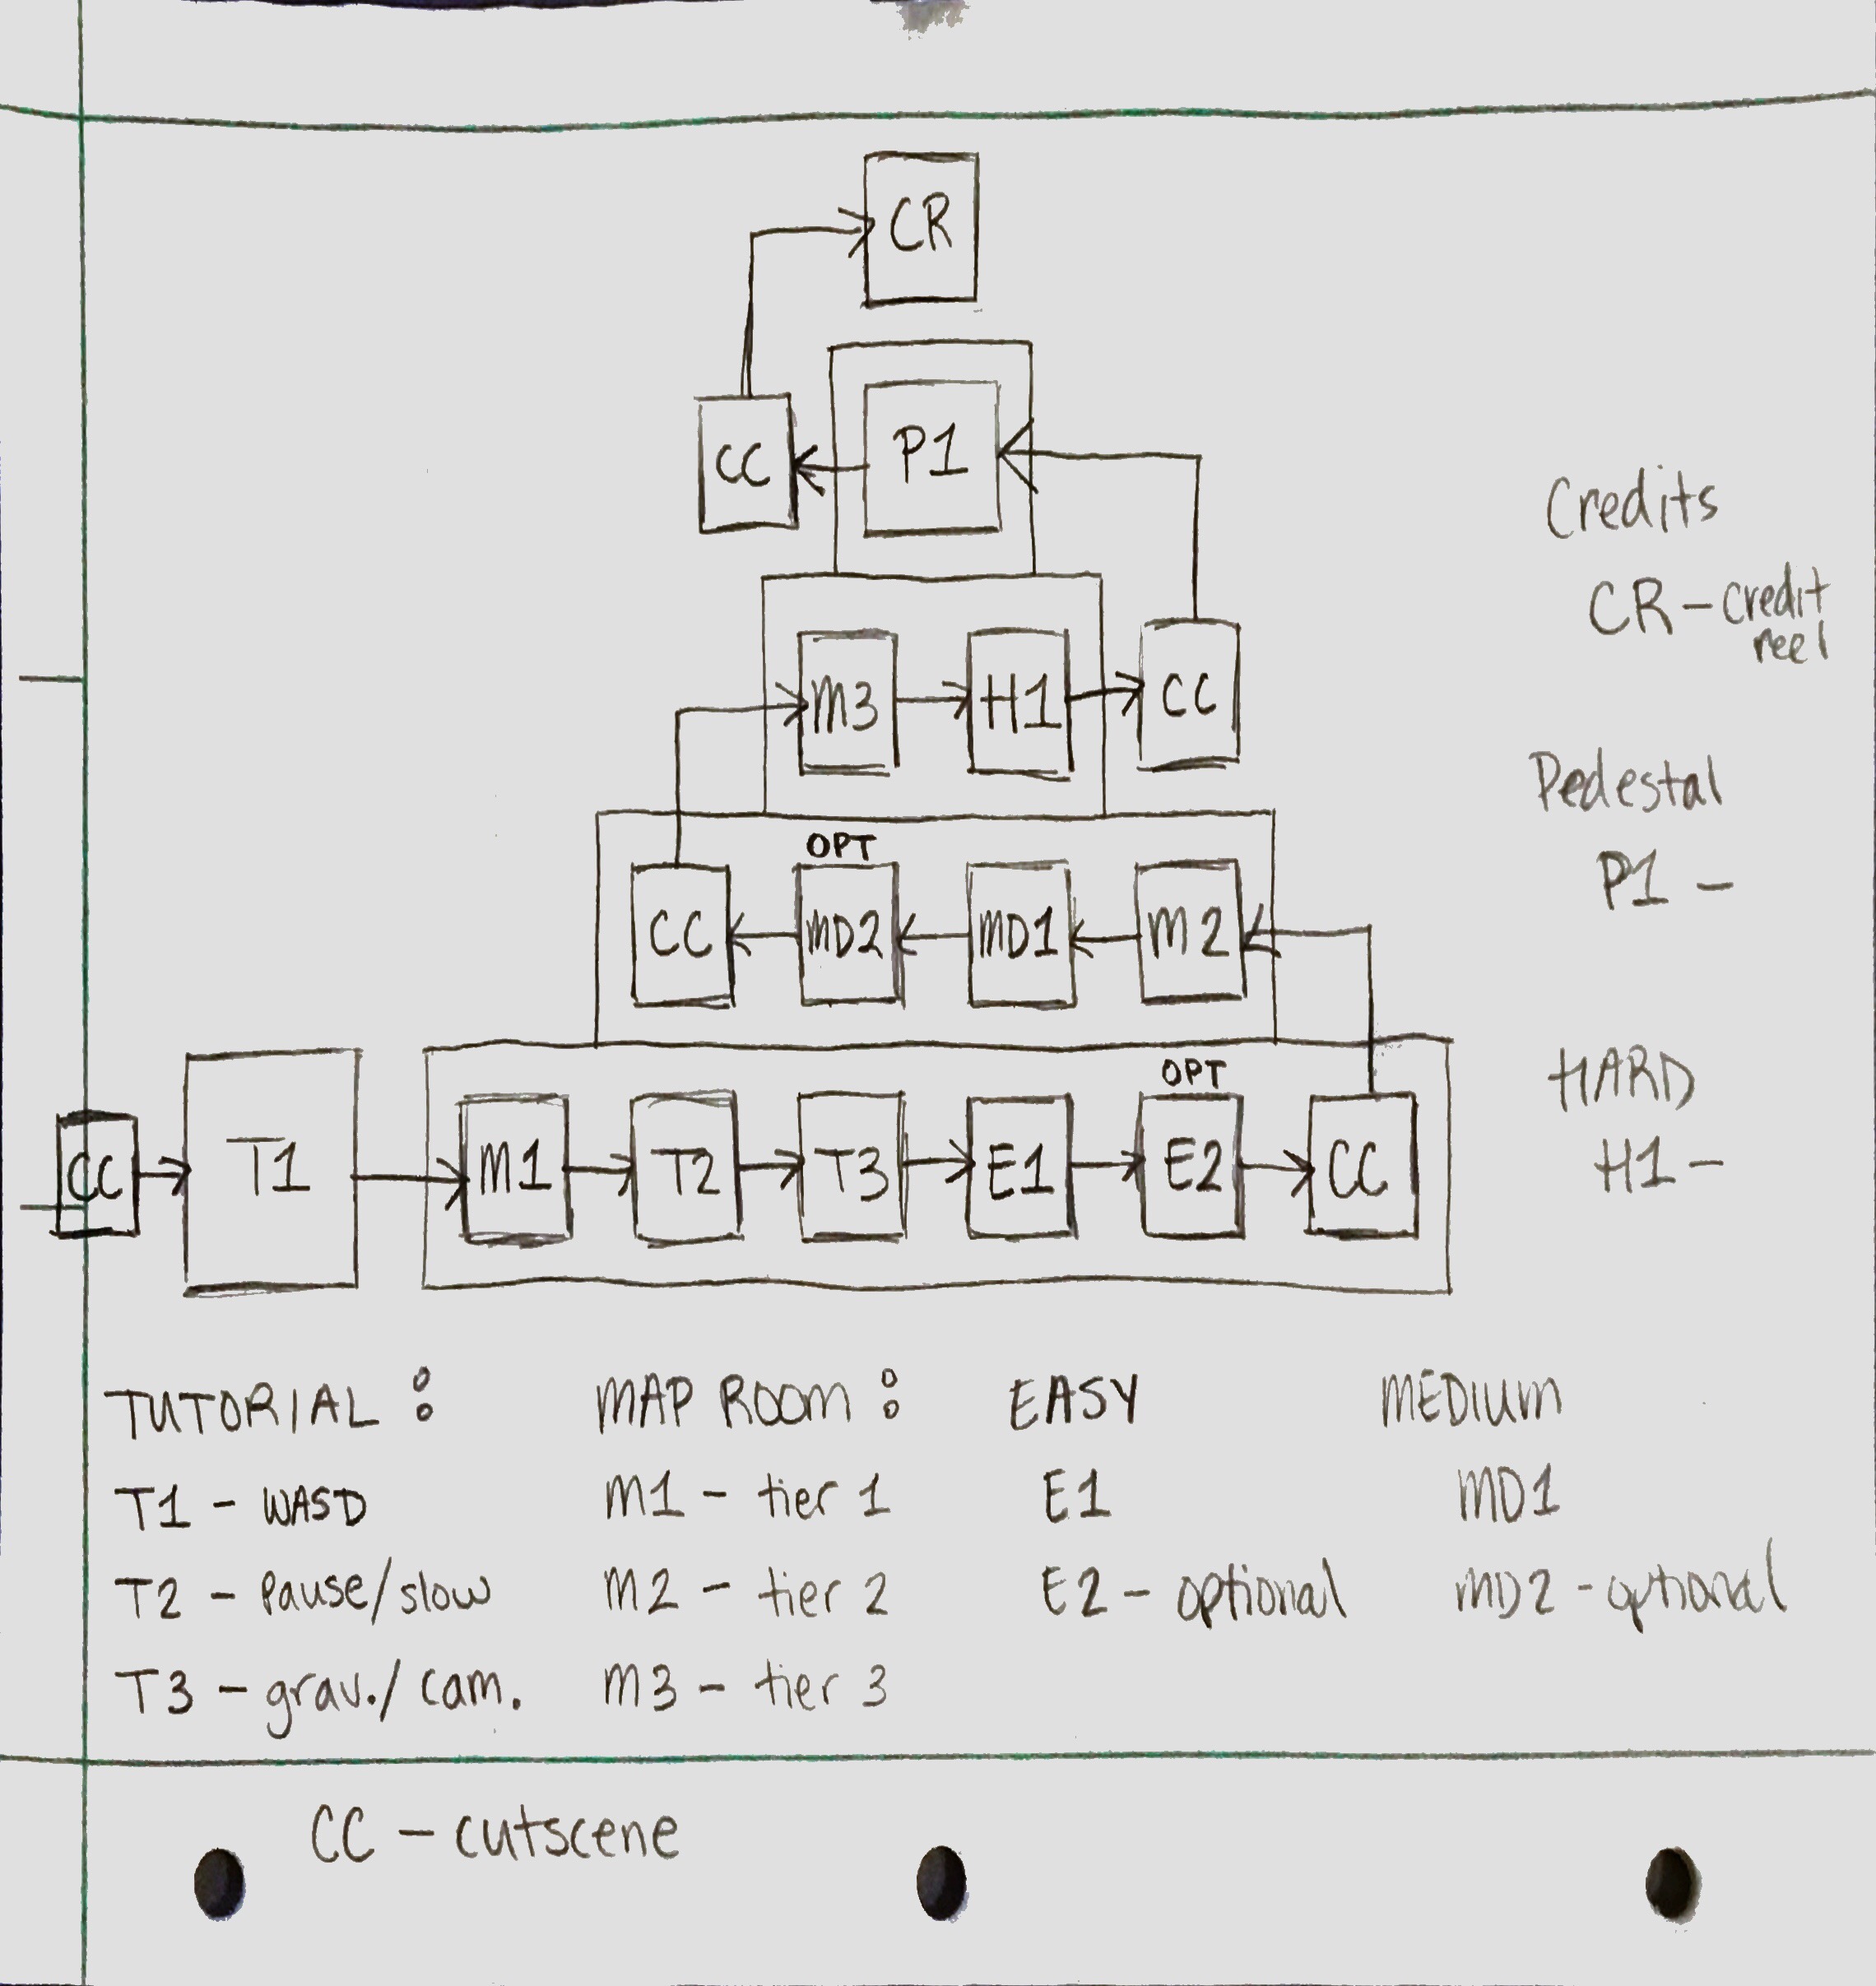 CR
CC
P1
M3
H1
CC
OPT
CC
MD2
MD1
M2
OPT
CC
T1
M1
T2
T3
E1
E2
CC
Credits
CR - credit
reel
Pedestal
P1 -
HARD
H1 -
TUTORIAL :
T1 - WASD
T2 - Pause/slow
T3 - grav./cam.
MAP ROOM :
M1 - tier 1
M2 - tier 2
M3 - tier 3
EASY
E1
E2 - optional
MEDIUM
MD1
MD2 - optional
CC - cutscene